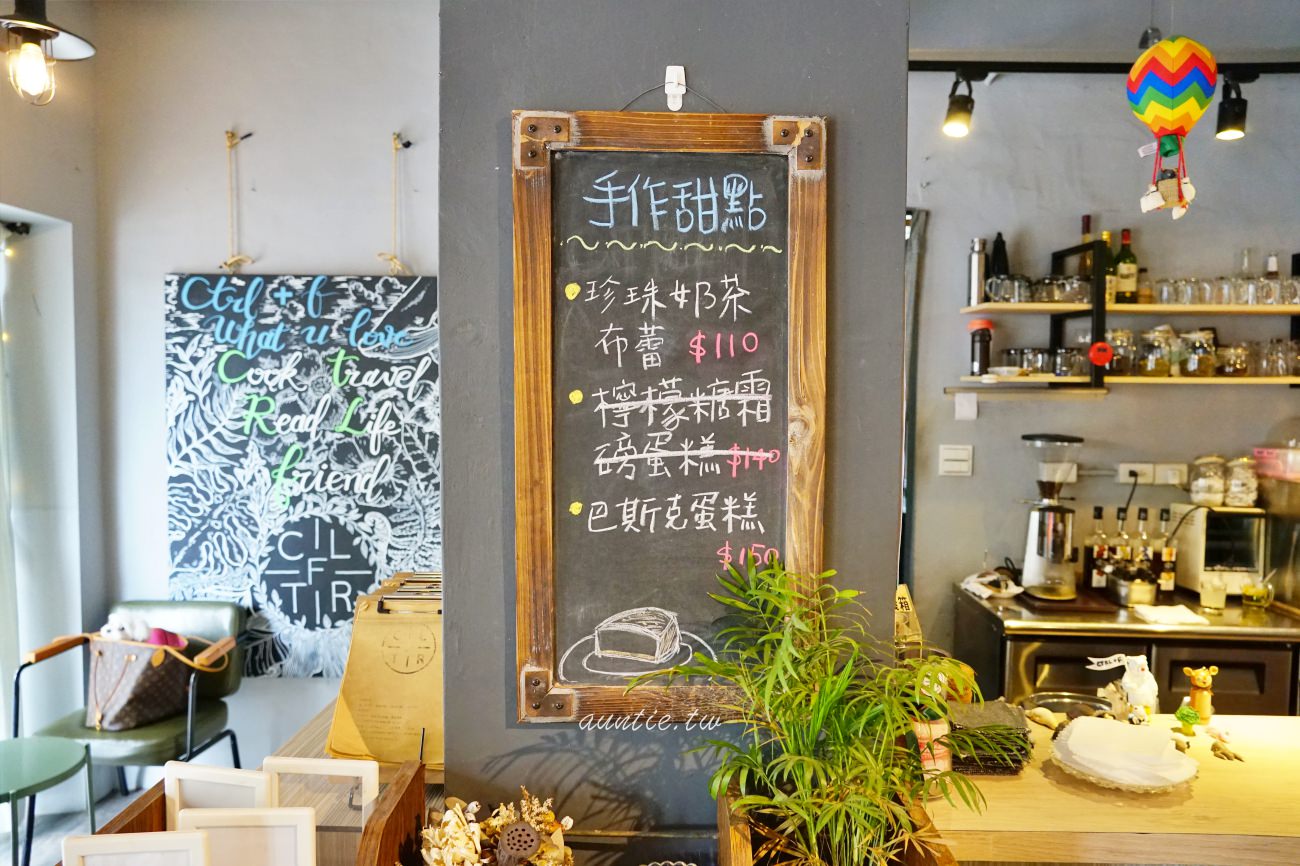 Ctrl + f
what u love
Cook travel
Read Life
friend
C I L
F
T I R
手作甜點
珍珠奶茶
布蕾 $110
檸檬糖霜
磅蛋糕 $140
巴斯克蛋糕
$150
auntie.tw
CTRL+F